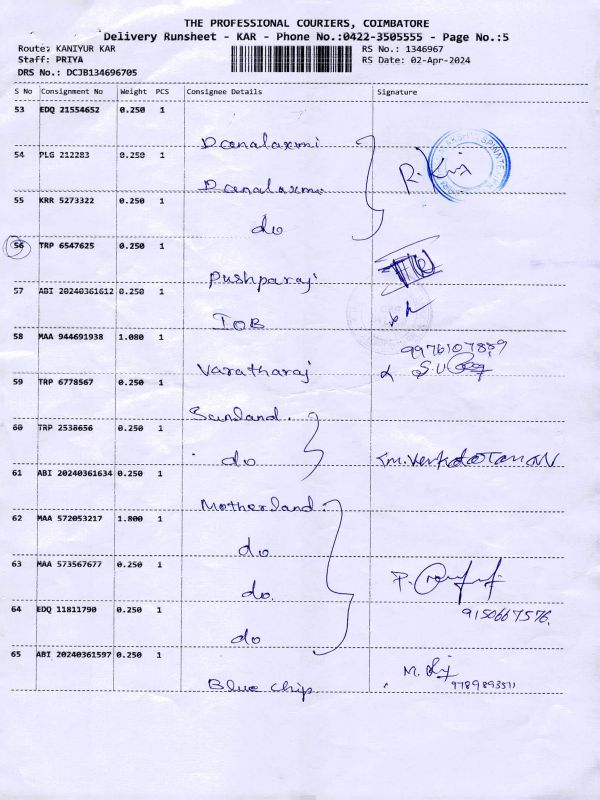 THE PROFESSIONAL COURIERS, COIMBATORE
Delivery Runsheet - KAR - Phone No.:0422-3505555 - Page No.:5
Route: KANIYUR KAR RS No.: 1346967
Staff: PRIYA RS Date: 02-Apr-2024
DRS No.: DCJB134696705
S No Consignment No Weight PCS Consignee Details Signature
53 EDQ 21554652 0.250 1
Danalaxmi
54 PLG 212283 0.250 1
Danalaxmi
55 KRR 5273322 0.250 1
do
56 TRP 6547625 0.250 1
Pushparaj
57 ABI 20240361612 0.250 1
IOB
58 MAA 944691938 1.080 1
Varatharaj
59 TRP 6778567 0.250 1
Sunland
60 TRP 2538656 0.250 1
do
61 ABI 20240361634 0.250 1
Motherland
62 MAA 572053217 1.800 1
do
63 MAA 573567677 0.250 1
do
64 EDQ 11811790 0.250 1
9150667576
do
65 ABI 20240361597 0.250 1
Blue chip 9789893511